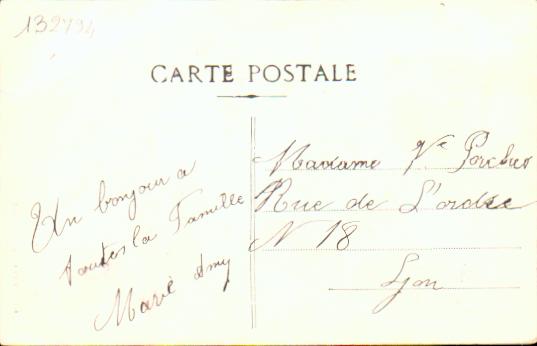 132794
CARTE POSTALE
Un bonjour a
toutes la Famille
Marie Amy
Madame Vᵉ Porcher
Rue de L'ordre
N 18
Lyon